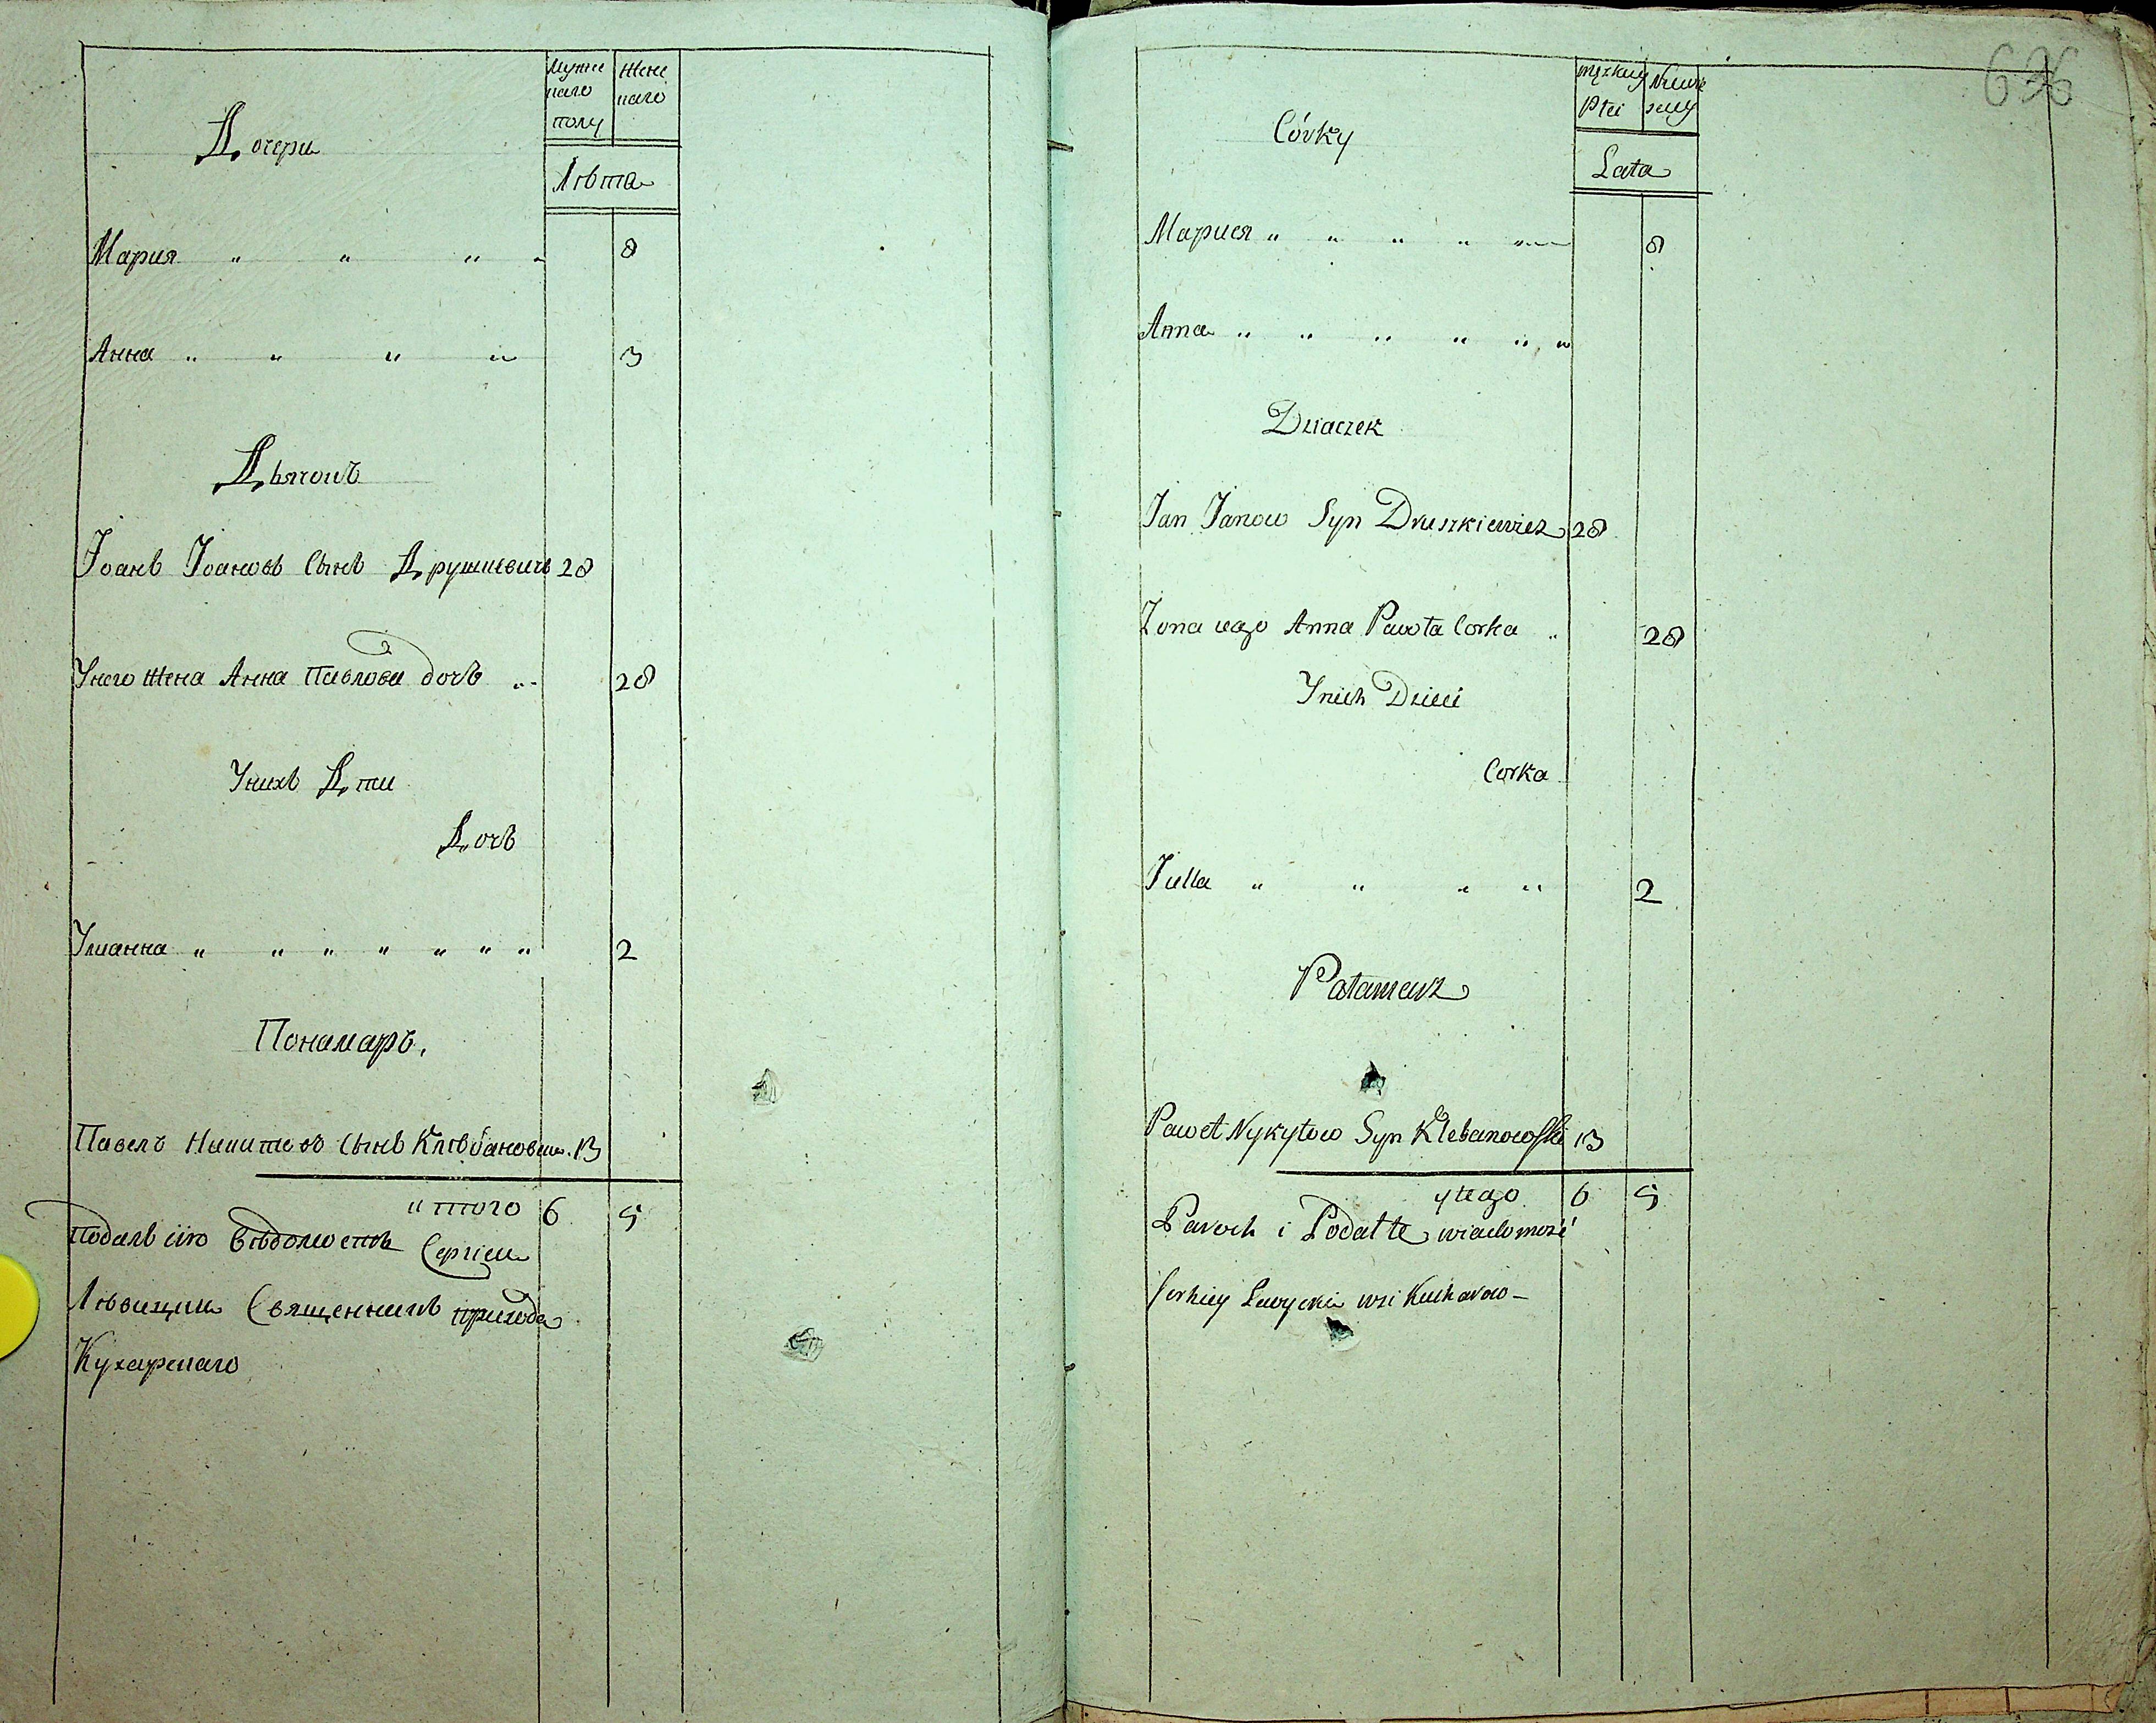 Мужескаго полу
Женскаго
Дочери
Лѣта
Мария " " " " 8
Анна " " " " 3
Дьячокъ
Іоанъ Іоановъ Сынъ Друшкевичъ 28
Унего Жена Анна Павлова дочъ " 28
Унихъ Дѣти
Дочъ
Улианна " " " " " " " 2
Понамаръ.
Павелъ Никитовъ Сынъ Клѣбановски 13
итого 6 5
Подалъ сію Вѣдомостъ Сергіи
Лѣвицки Священникъ прихода
Кухарскаго
696
męzkiey Płci
Córky
Lata
Мариея " " " " " 8
Anna " " " " " "
Dziaczek
Jan Janow Syn Druszkiewicz 28
Zona iego Anna Pawła Corka " 28
Ynich Dzieci
Corka
Julla " " " " 2
Patamarz
Paweł Nykytow Syn Klebanowski 13
ytego 6 5
Paroch i Podał te wiadomość
Serhiy Lewycki wsi Kucharow –